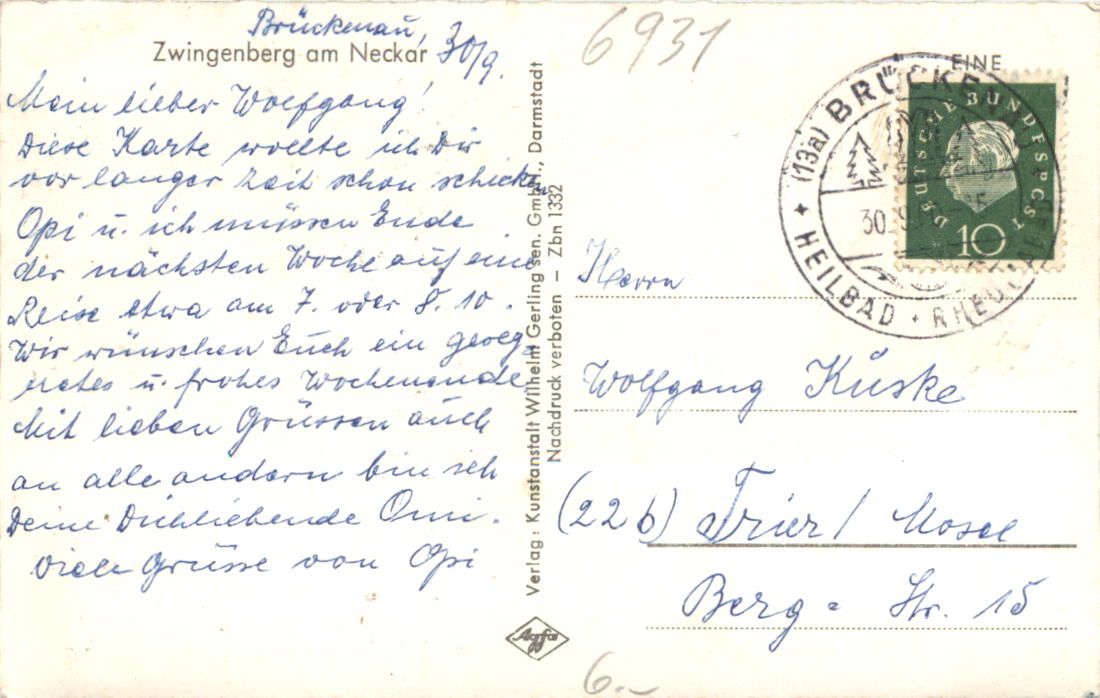 Brückenau, 30/9.
Zwingenberg am Neckar
Mein lieber Wolfgang!
Diese Karte wollte ich Dir
vor langer Zeit schon schicken
Opi u. ich müssen Ende
der nächsten Woche auf eine
Reise etwa am 7. oder 8. 10.
Wir wünschen Euch ein geseg-
netes u. frohes Wochenende
Mit lieben Grüssen auch
an alle andern bin ich
Deine Dichliebende Omi.
Viele Grüsse von Opi
Verlag: Kunstanstalt Wilhelm Gerling sen. GmbH., Darmstadt
Nachdruck verboten – Zbn 1332
Agfa
6931
EINE
DEUTSCHE BUNDESPOST
10
(13a) BRÜCKENAU
30. 9.
HEILBAD + RHEUMABAD
Herrn
Wolfgang Kuske
(22b) Trier / Mosel
Berg-Str. 15
6.–